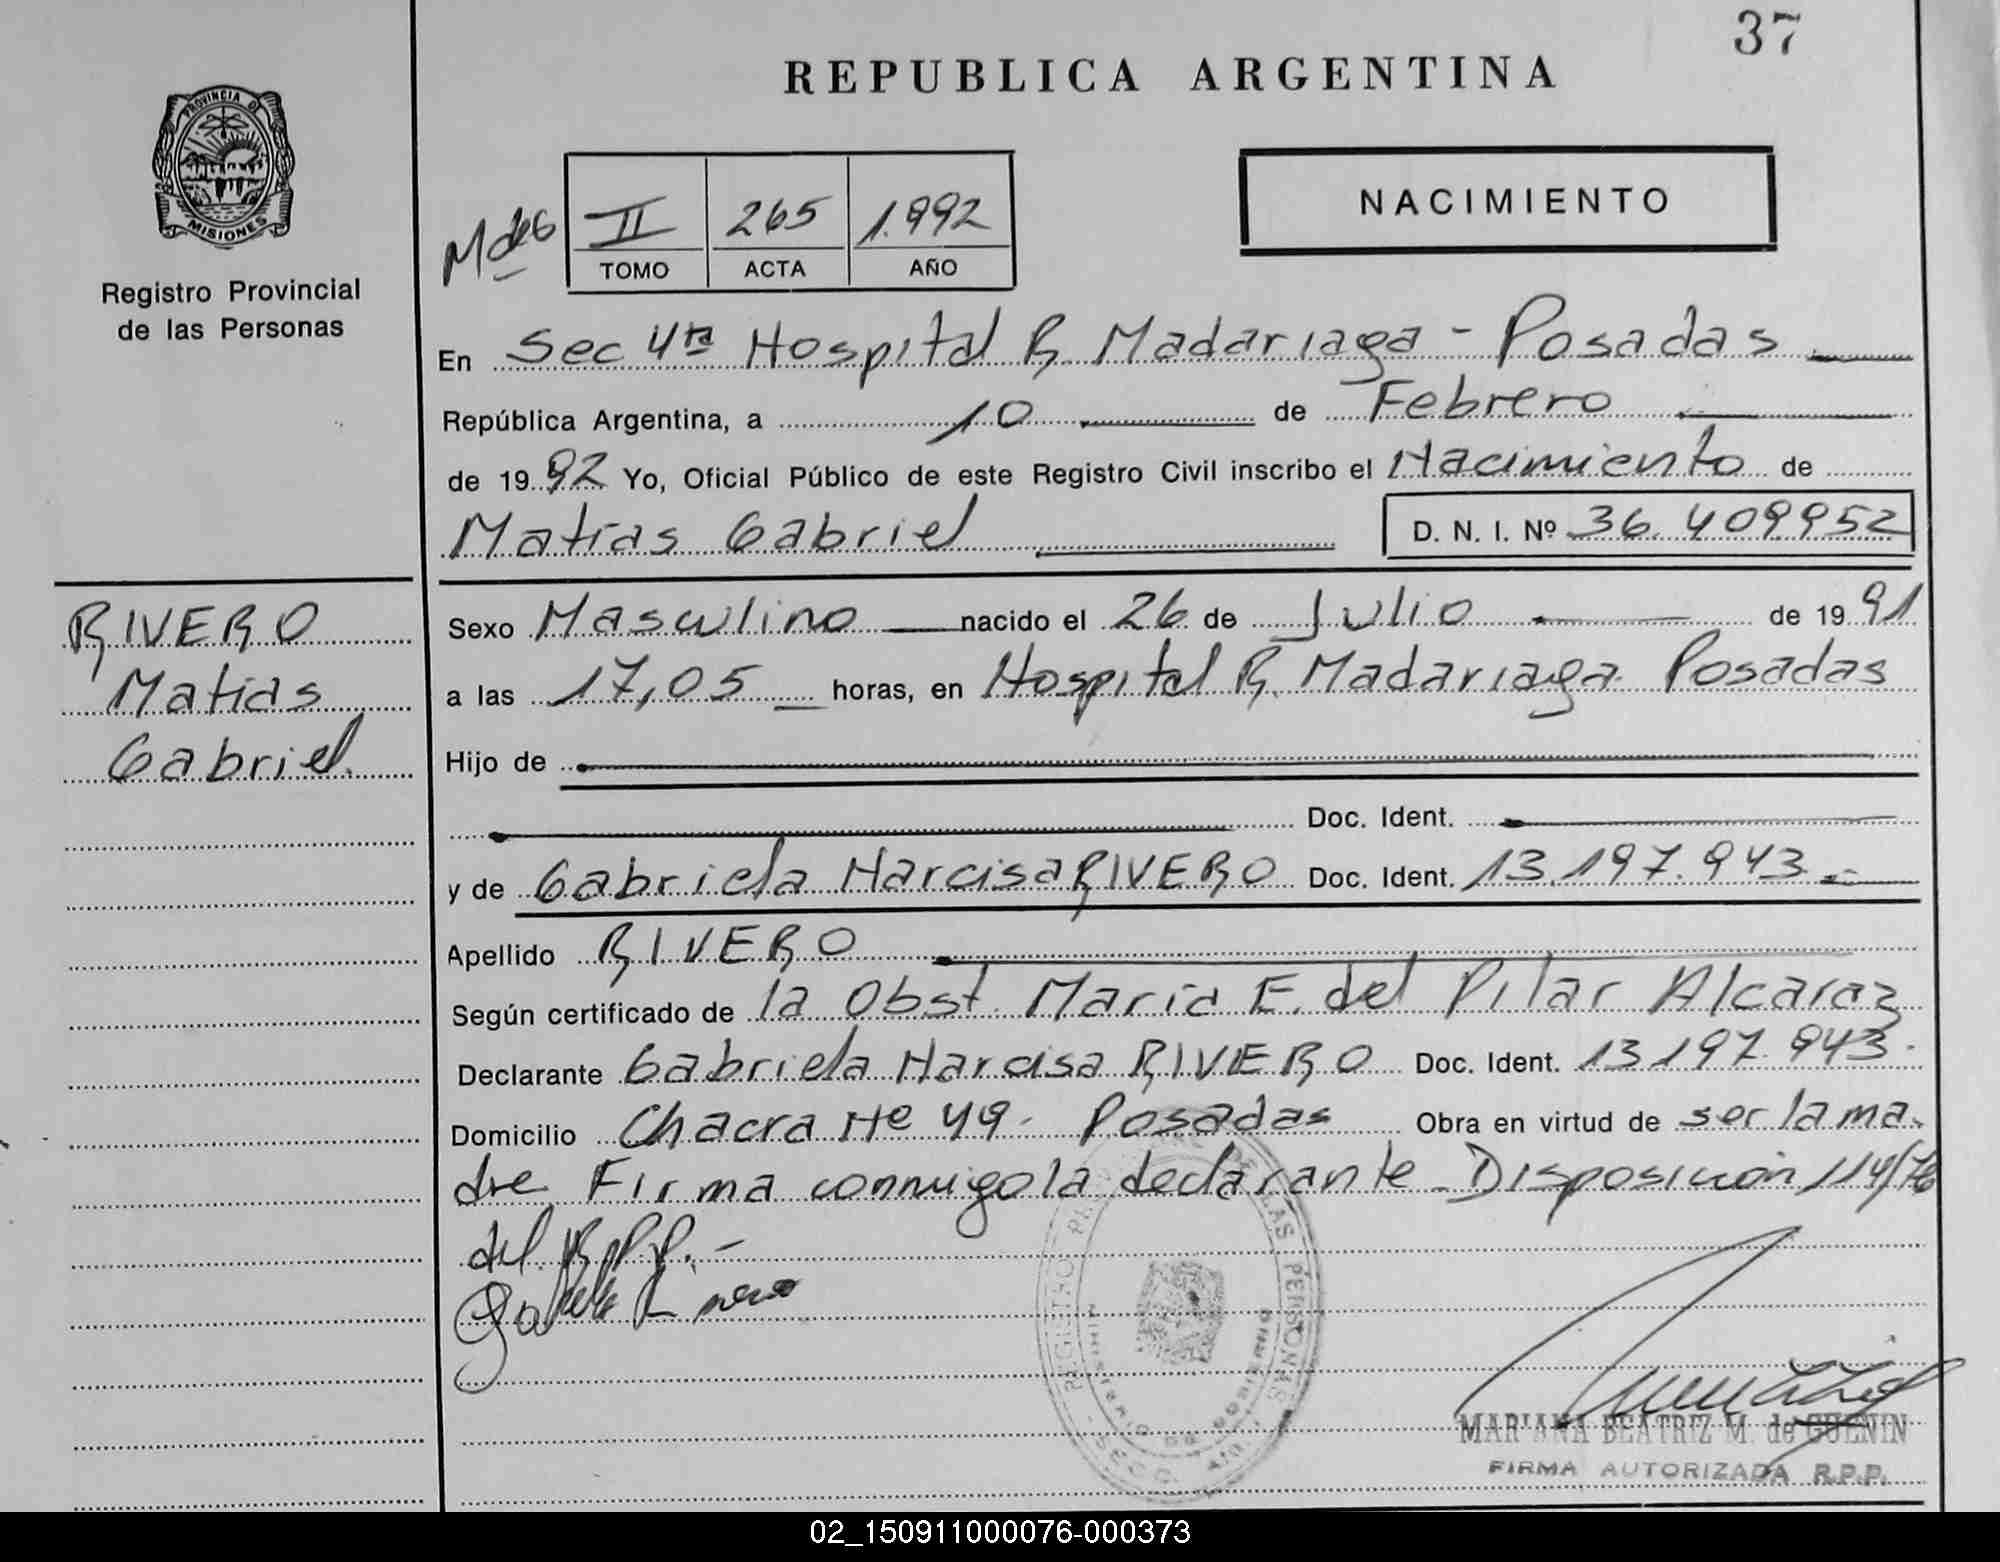 37
REPUBLICA ARGENTINA
PROVINCIA DE
MISIONES
Registro Provincial
de las Personas
NACIMIENTO
II 265 1.992
TOMO ACTA AÑO
En Sec 4ta Hospital R. Madariaga - Posadas
República Argentina, a 10 de Febrero
de 1992 Yo, Oficial Público de este Registro Civil inscribo el Nacimiento de
Matias Gabriel D. N. I. Nº 36.409952
RIVERO
Matias
Gabriel.
Sexo Masculino nacido el 26 de Julio de 1991
a las 17,05 horas, en Hospital R. Madariaga. Posadas
Hijo de
Doc. Ident.
y de Gabriela Narcisa RIVERO Doc. Ident. 13.197.943.-
Apellido RIVERO
Según certificado de la Obst. Maria E. del Pilar Alcaraz
Declarante Gabriela Narcisa RIVERO Doc. Ident. 13.197.943.
Domicilio Chacra Nº 49. Posadas Obra en virtud de ser la ma-
dre Firma conmigo la declarante - Disposición 114/76
del R.P.P. -
Gabriela Rivero
REGISTRO DE LAS PERSONAS
MINISTERIO DE GOBIERNO
SECC. 4ta.
MARIANA BEATRIZ M. de GUENIN
FIRMA AUTORIZADA R.P.P.
02_150911000076-000373